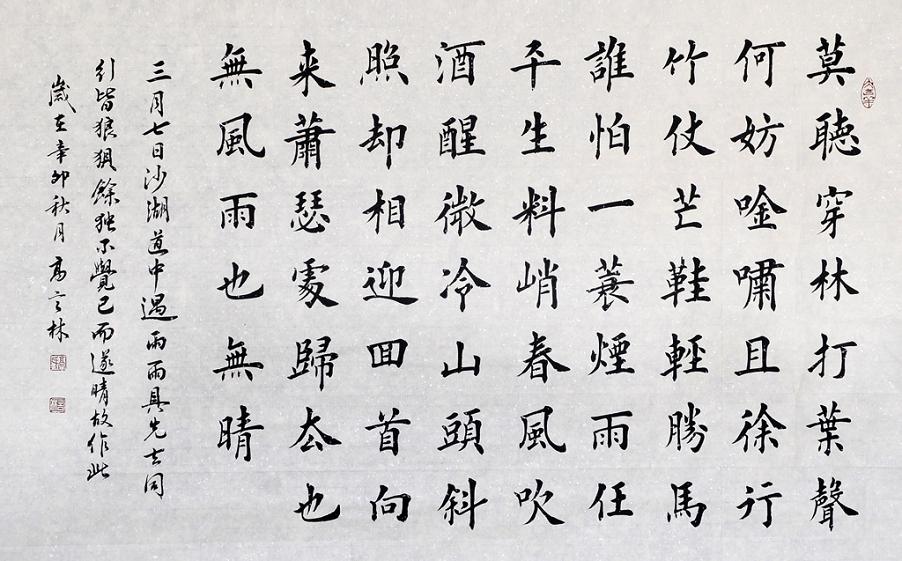 莫聽穿林打葉聲
何妨唫嘯且徐行
竹仗芒鞋輕勝馬
誰怕一蓑煙雨任
平生料峭春風吹
酒醒微冷山頭斜
照却相迎回首向
来蕭瑟處歸去也
無風雨也無晴
三月七日沙湖道中遇雨雨具先去同
行皆狼狽餘独不覺已而遂晴故作此
歲在辛卯秋月高言林